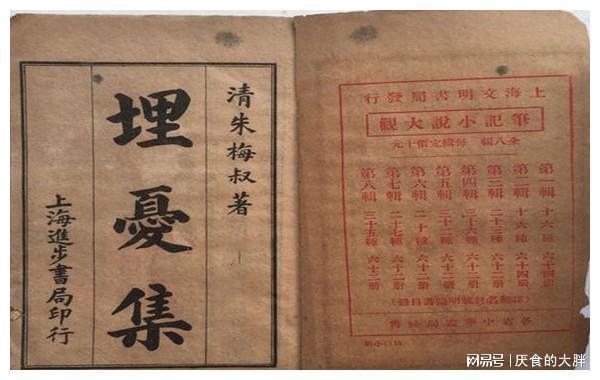 清朱梅叔著
埋憂集
上海進步書局印行
上海文明書局發行
筆記小說大觀
全八輯 每輯定價十元
第一輯 十六種 六十四册
第二輯 十六種 六十四册
第三輯 二十三種 六十二册
第四輯 三十六種 六十二册
第五輯 三十二種 六十二册
第六輯 二十種 六十二册
第七輯 二十七種 六十二册
第八輯 三十五種 六十二册
各省中華書局經售
网易号 | 厌食的大胖